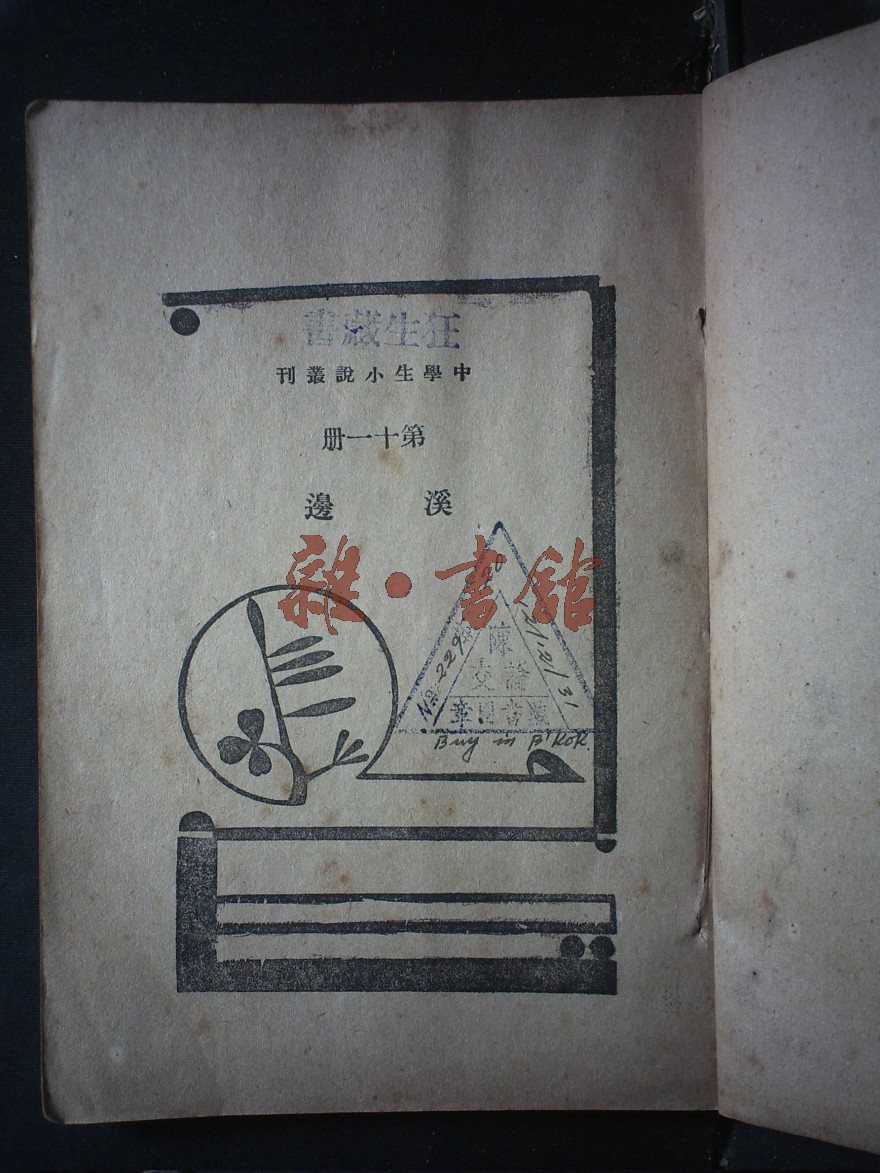 狂生藏書
中學生小說叢刊
第十一册
溪邊
雜·書館
No. 229
12/12/31
陳
論文
藏書圖章
Buy in B'KoK.